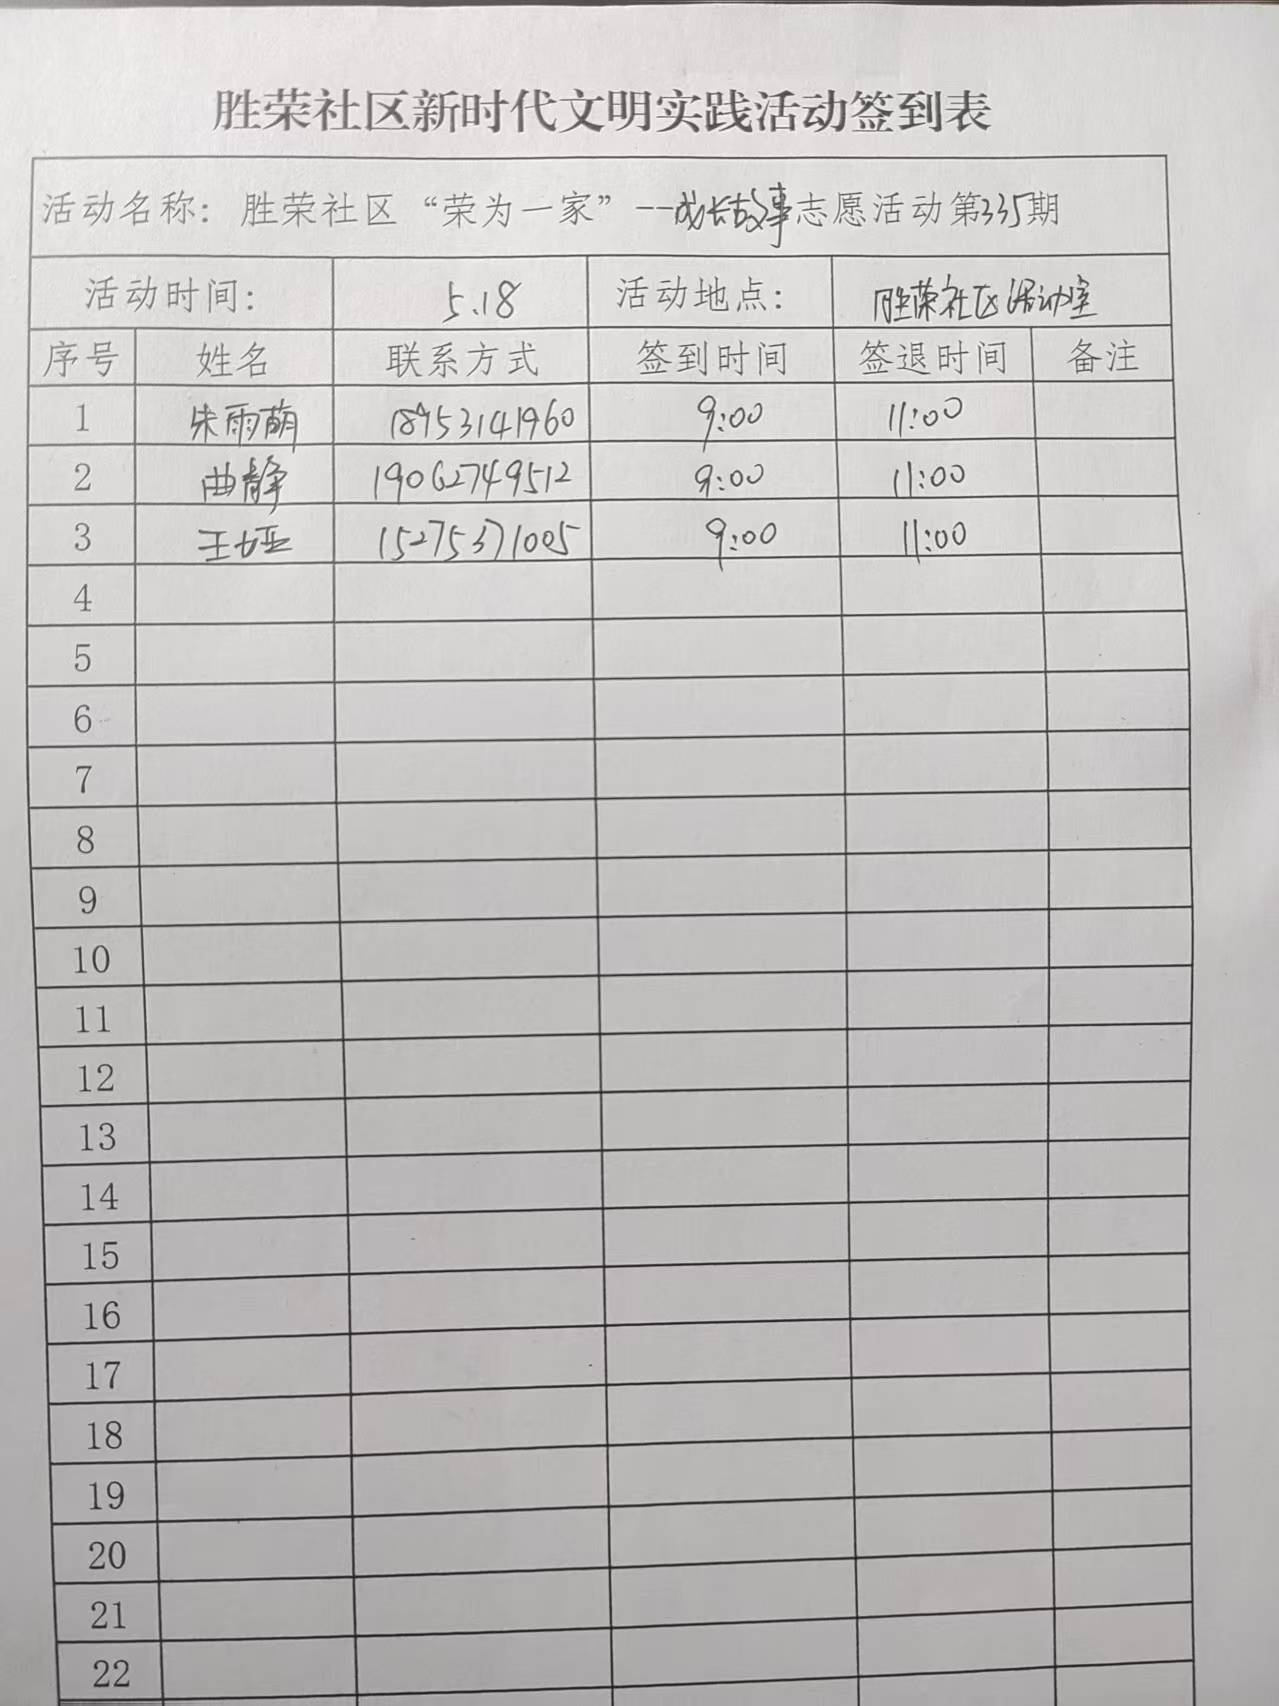 胜荣社区新时代文明实践活动签到表
活动名称：胜荣社区“荣为一家”--成长故事志愿活动第335期
活动时间： 5.18 活动地点： 胜荣社区活动室
序号 姓名 联系方式 签到时间 签退时间 备注
1 朱雨萌 18953141960 9:00 11:00
2 曲静 19062749512 9:00 11:00
3 王娅 15275371005 9:00 11:00
4
5
6
7
8
9
10
11
12
13
14
15
16
17
18
19
20
21
22